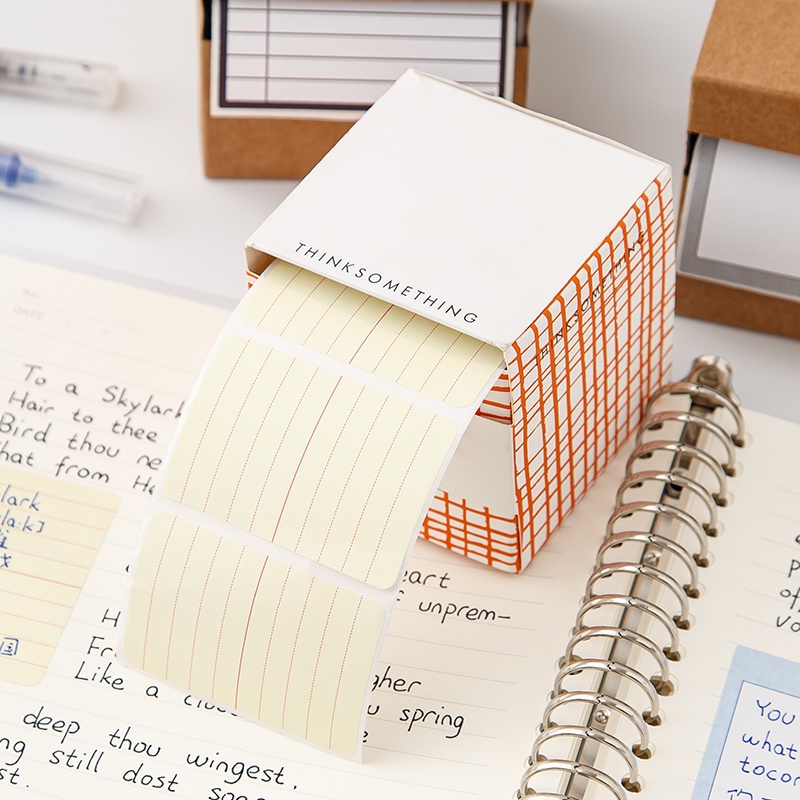 THINKSOMETHING
THINKSOMETHING
DATE
To a Skylark
Hair to thee
Bird thou ne
hat from He
lark
eart
f unprem-
H
Fr
gher
Like a clou
u spring
e
deep thou wingest,
ng still dost soa
st.
You
what
tocor